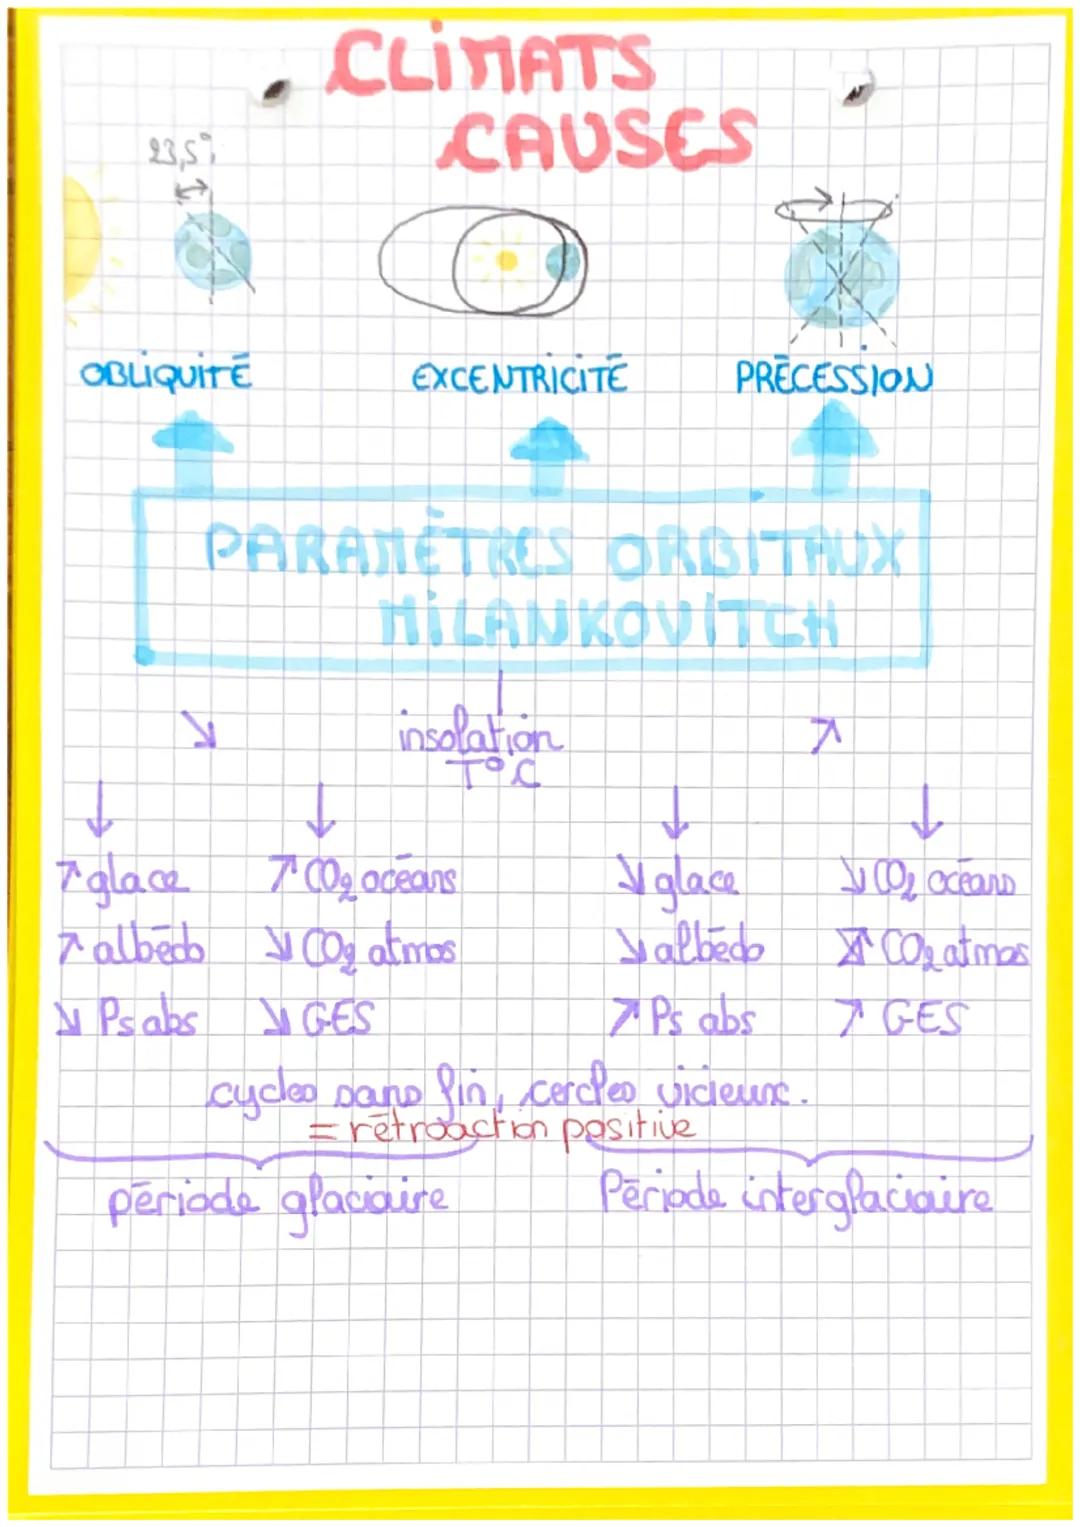 CLIMATS
CAUSES
23,5°
OBLIQUITÉ EXCENTRICITÉ PRÉCESSION
PARAMÈTRES ORBITAUX
MILANKOVITCH
↘ insolation ↗
T°C
↓ ↓ ↓ ↓
↗ glace ↗ CO₂ océans ↘ glace ↘ CO₂ océans
↗ albédo ↘ CO₂ atmos ↘ albédo ↗ CO₂ atmos
↘ Ps abs ↘ GES ↗ Ps abs ↗ GES
cycles sans fin, cercles vicieux.
= rétroaction positive
période glaciaire Période interglaciaire